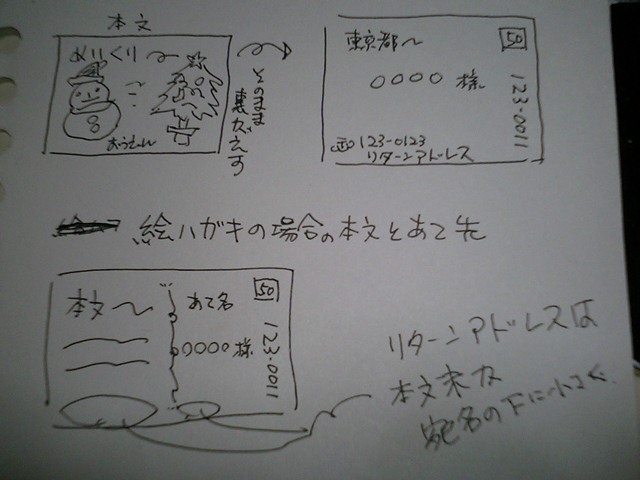 本文
めりくり〜
そのまま
裏がえす
東京都〜
50
〇〇〇〇 様
123-0011
〒123-0123
リターンアドレス
絵ハガキの場合の本文とあて先
本文〜
あて名
50
〇〇〇〇様
123-0011
リターンアドレスは
本文末か
宛名の下に小さく